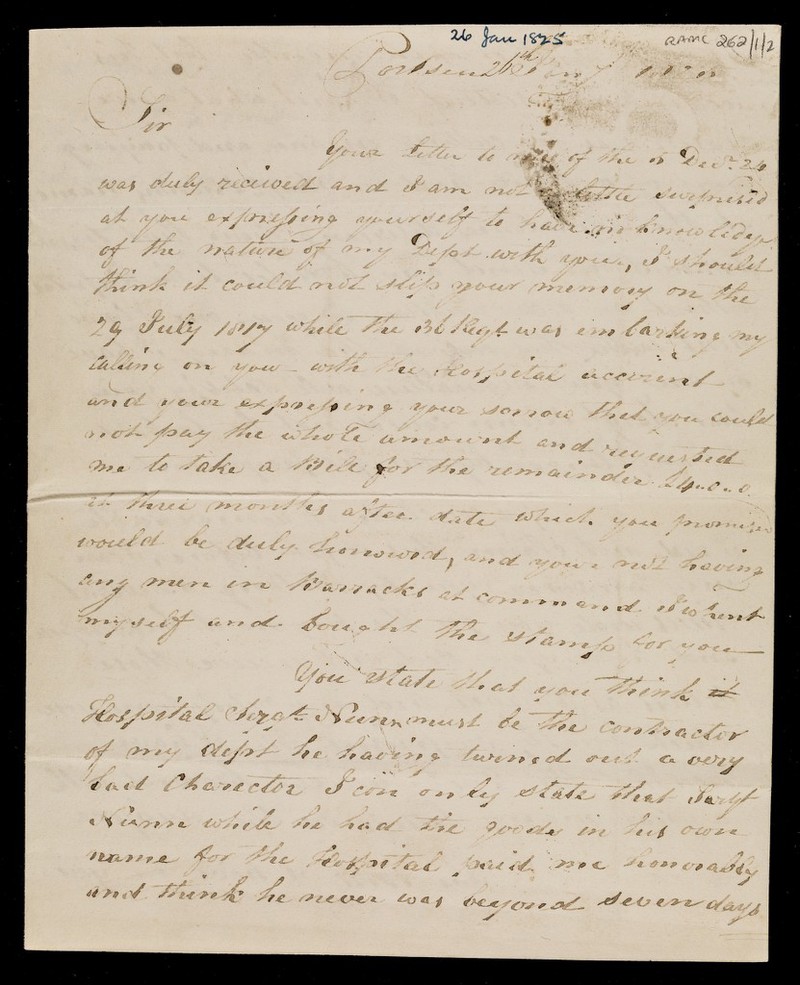 26 Jan 1825
RAMC 262/1/2
Portsea 26th Jany
Sir
Your Letter to mine of the 5 Decr. 24
was duly received and I am not a little surprised
at you expressing yourself to have no knowledge
of the nature of my Dept with you, I should
think it could not slip your memory on the
29 July 1817 while the 36 Regt was imbarking my
calling on you with the Hospital account
and your expressing your sorrow that you could
not pay the whole amount and requested
me to take a Bill for the remainder
at three months after date which you promised
would be duly honowrd, and your not having
any men in Barracks at command I whent
myself and bought the stamp for you
You state that you think it
Hospital Sergt Nunn must be the contractor
of my dept he having turned out a very
bad Charecter I can only state that Sergt
Nunn while he had the goods in his own
name for the Hospital paid me honorably
and think he never was beyond seven days